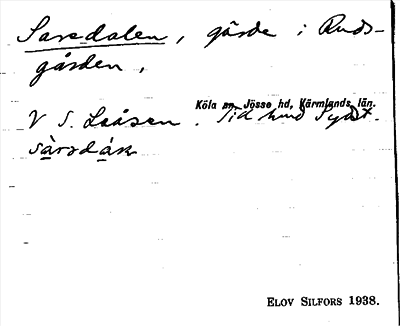 Sarsdalen, gärde i Ruds-
gården,
Köla sn, Jösse hd, Värmlands län.
V S. Lååsen. Tid hund
sàrsdàk
ELOV SILFORS 1938.